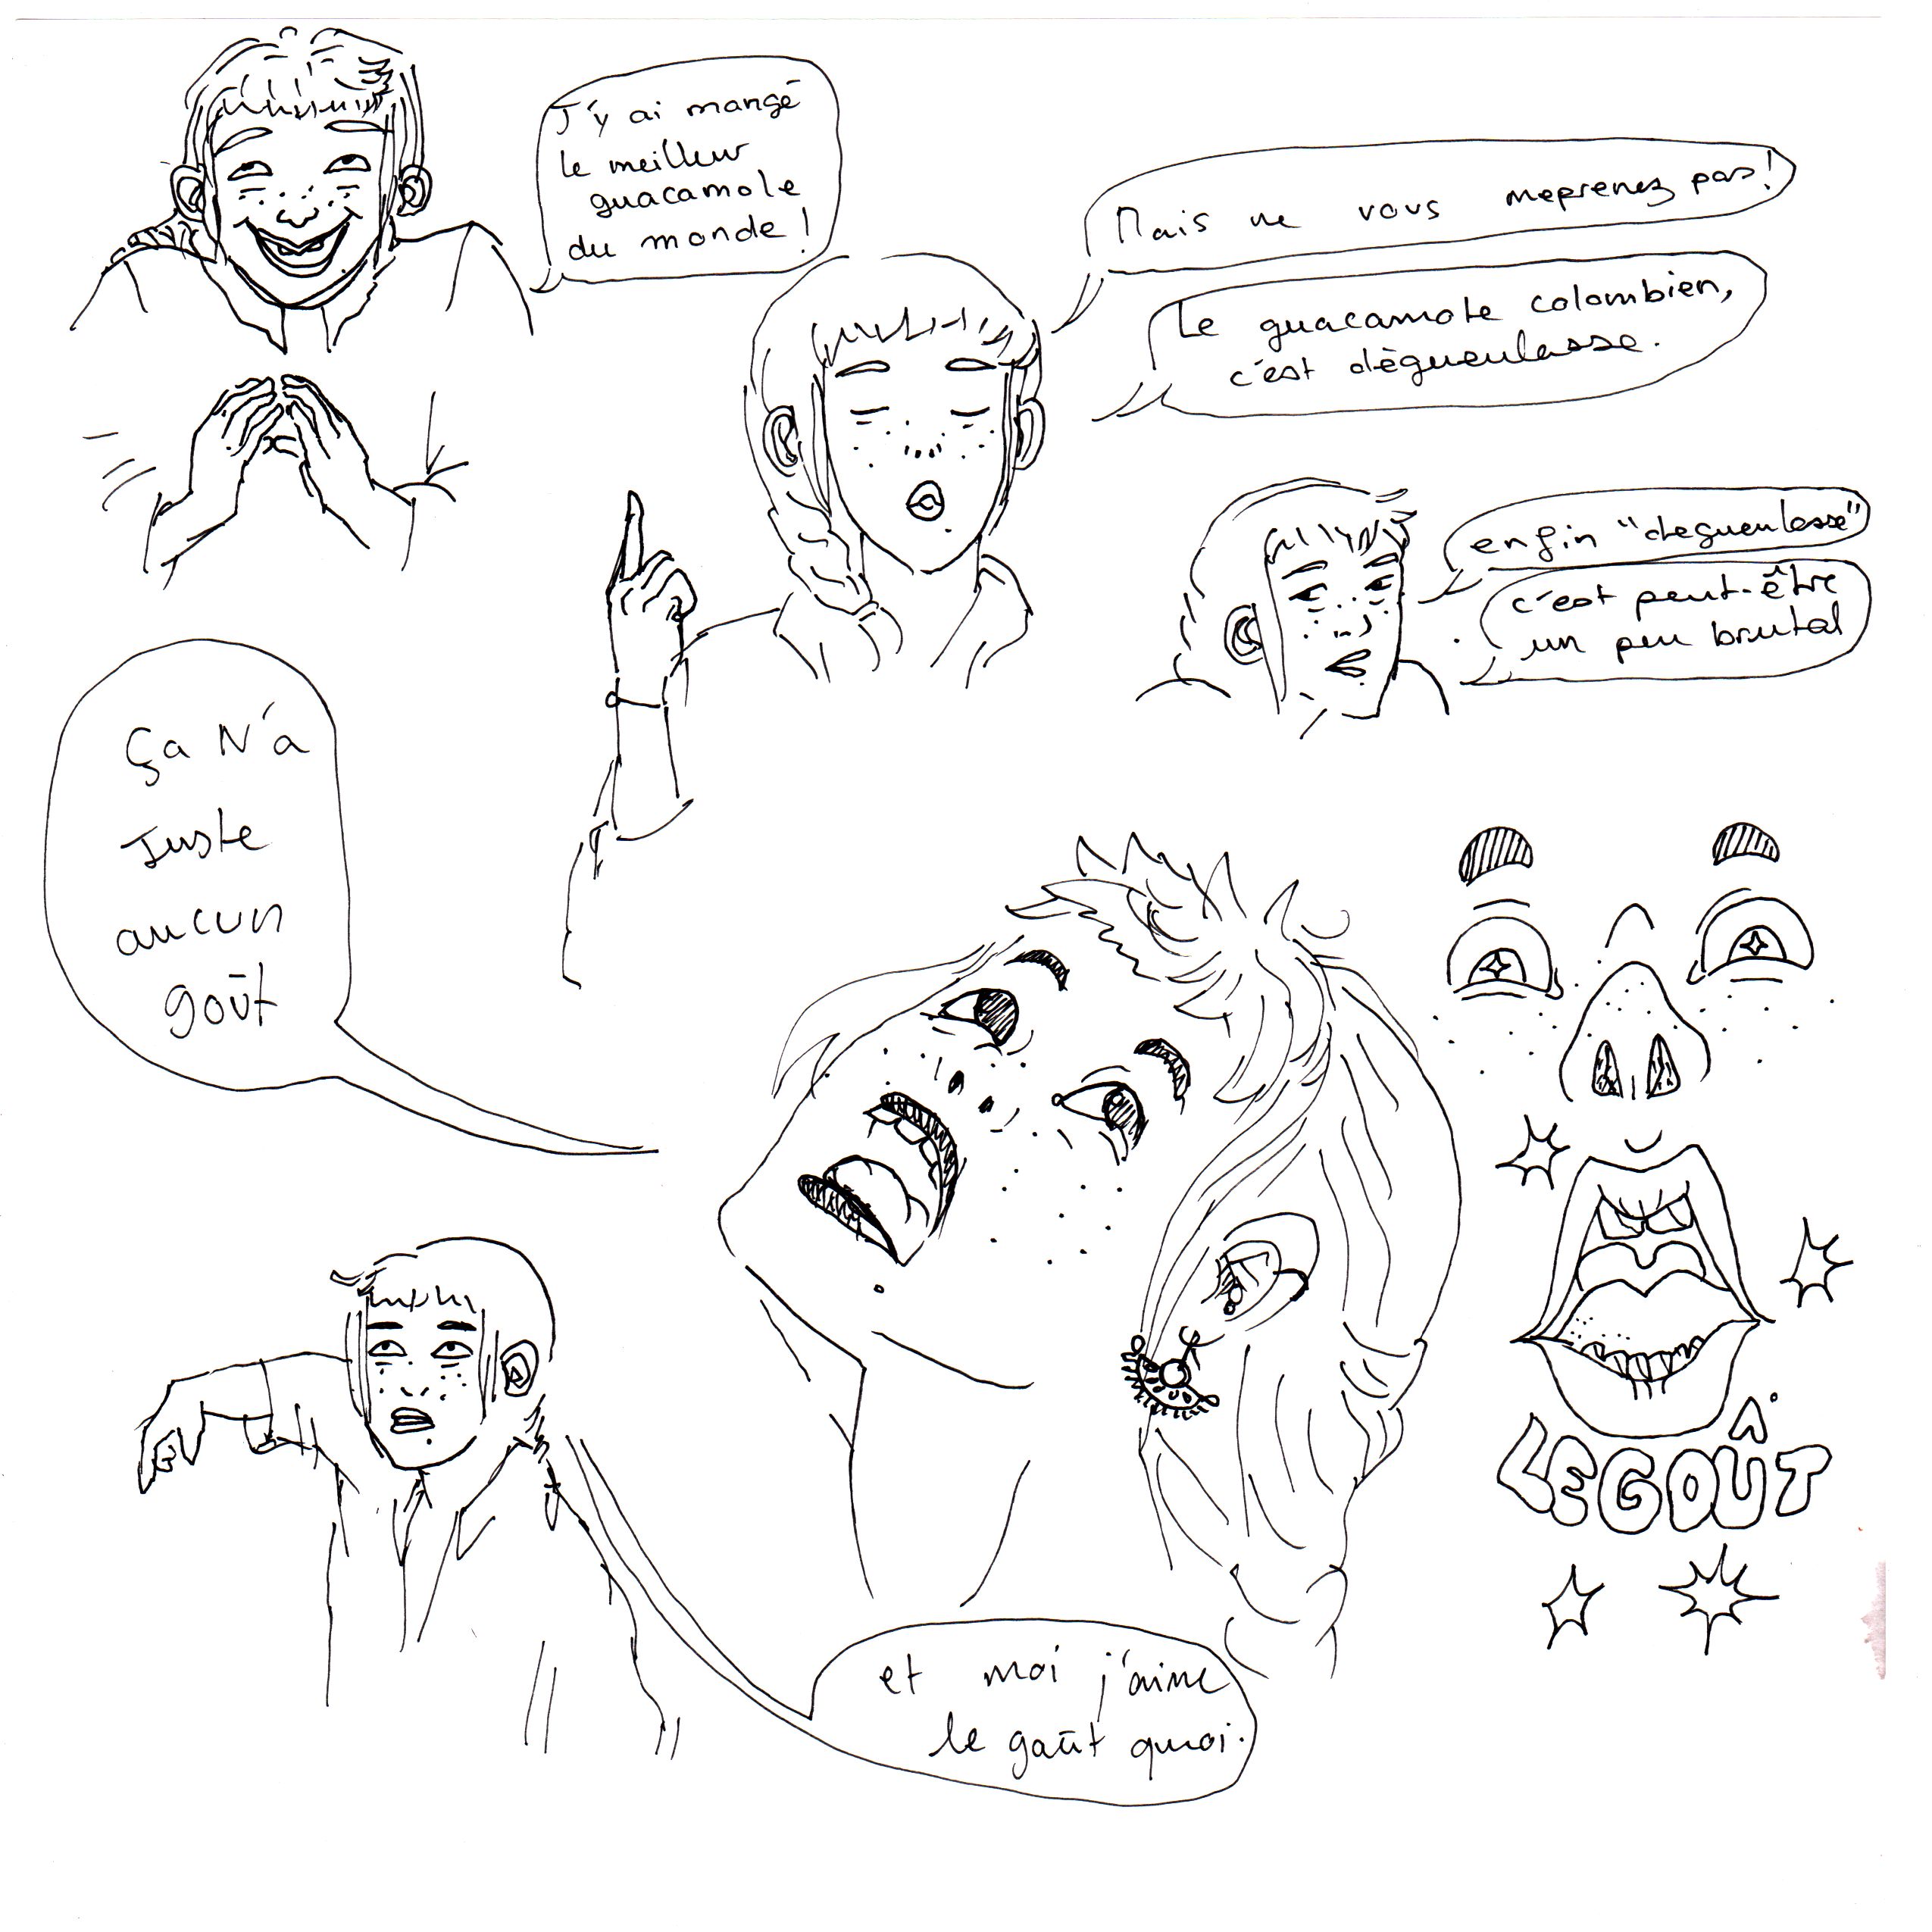 J'y ai mangé
le meilleur
guacamole
du monde !
Mais ne vous meprenez pas !
Le guacamole colombien,
c'est dégueulasse.
enfin "degueulasse"
c'est peut-être
un peu brutal
Ça N'a
Juste
aucun
goût
LE GOÛT
et moi j'aime
le goût quoi.